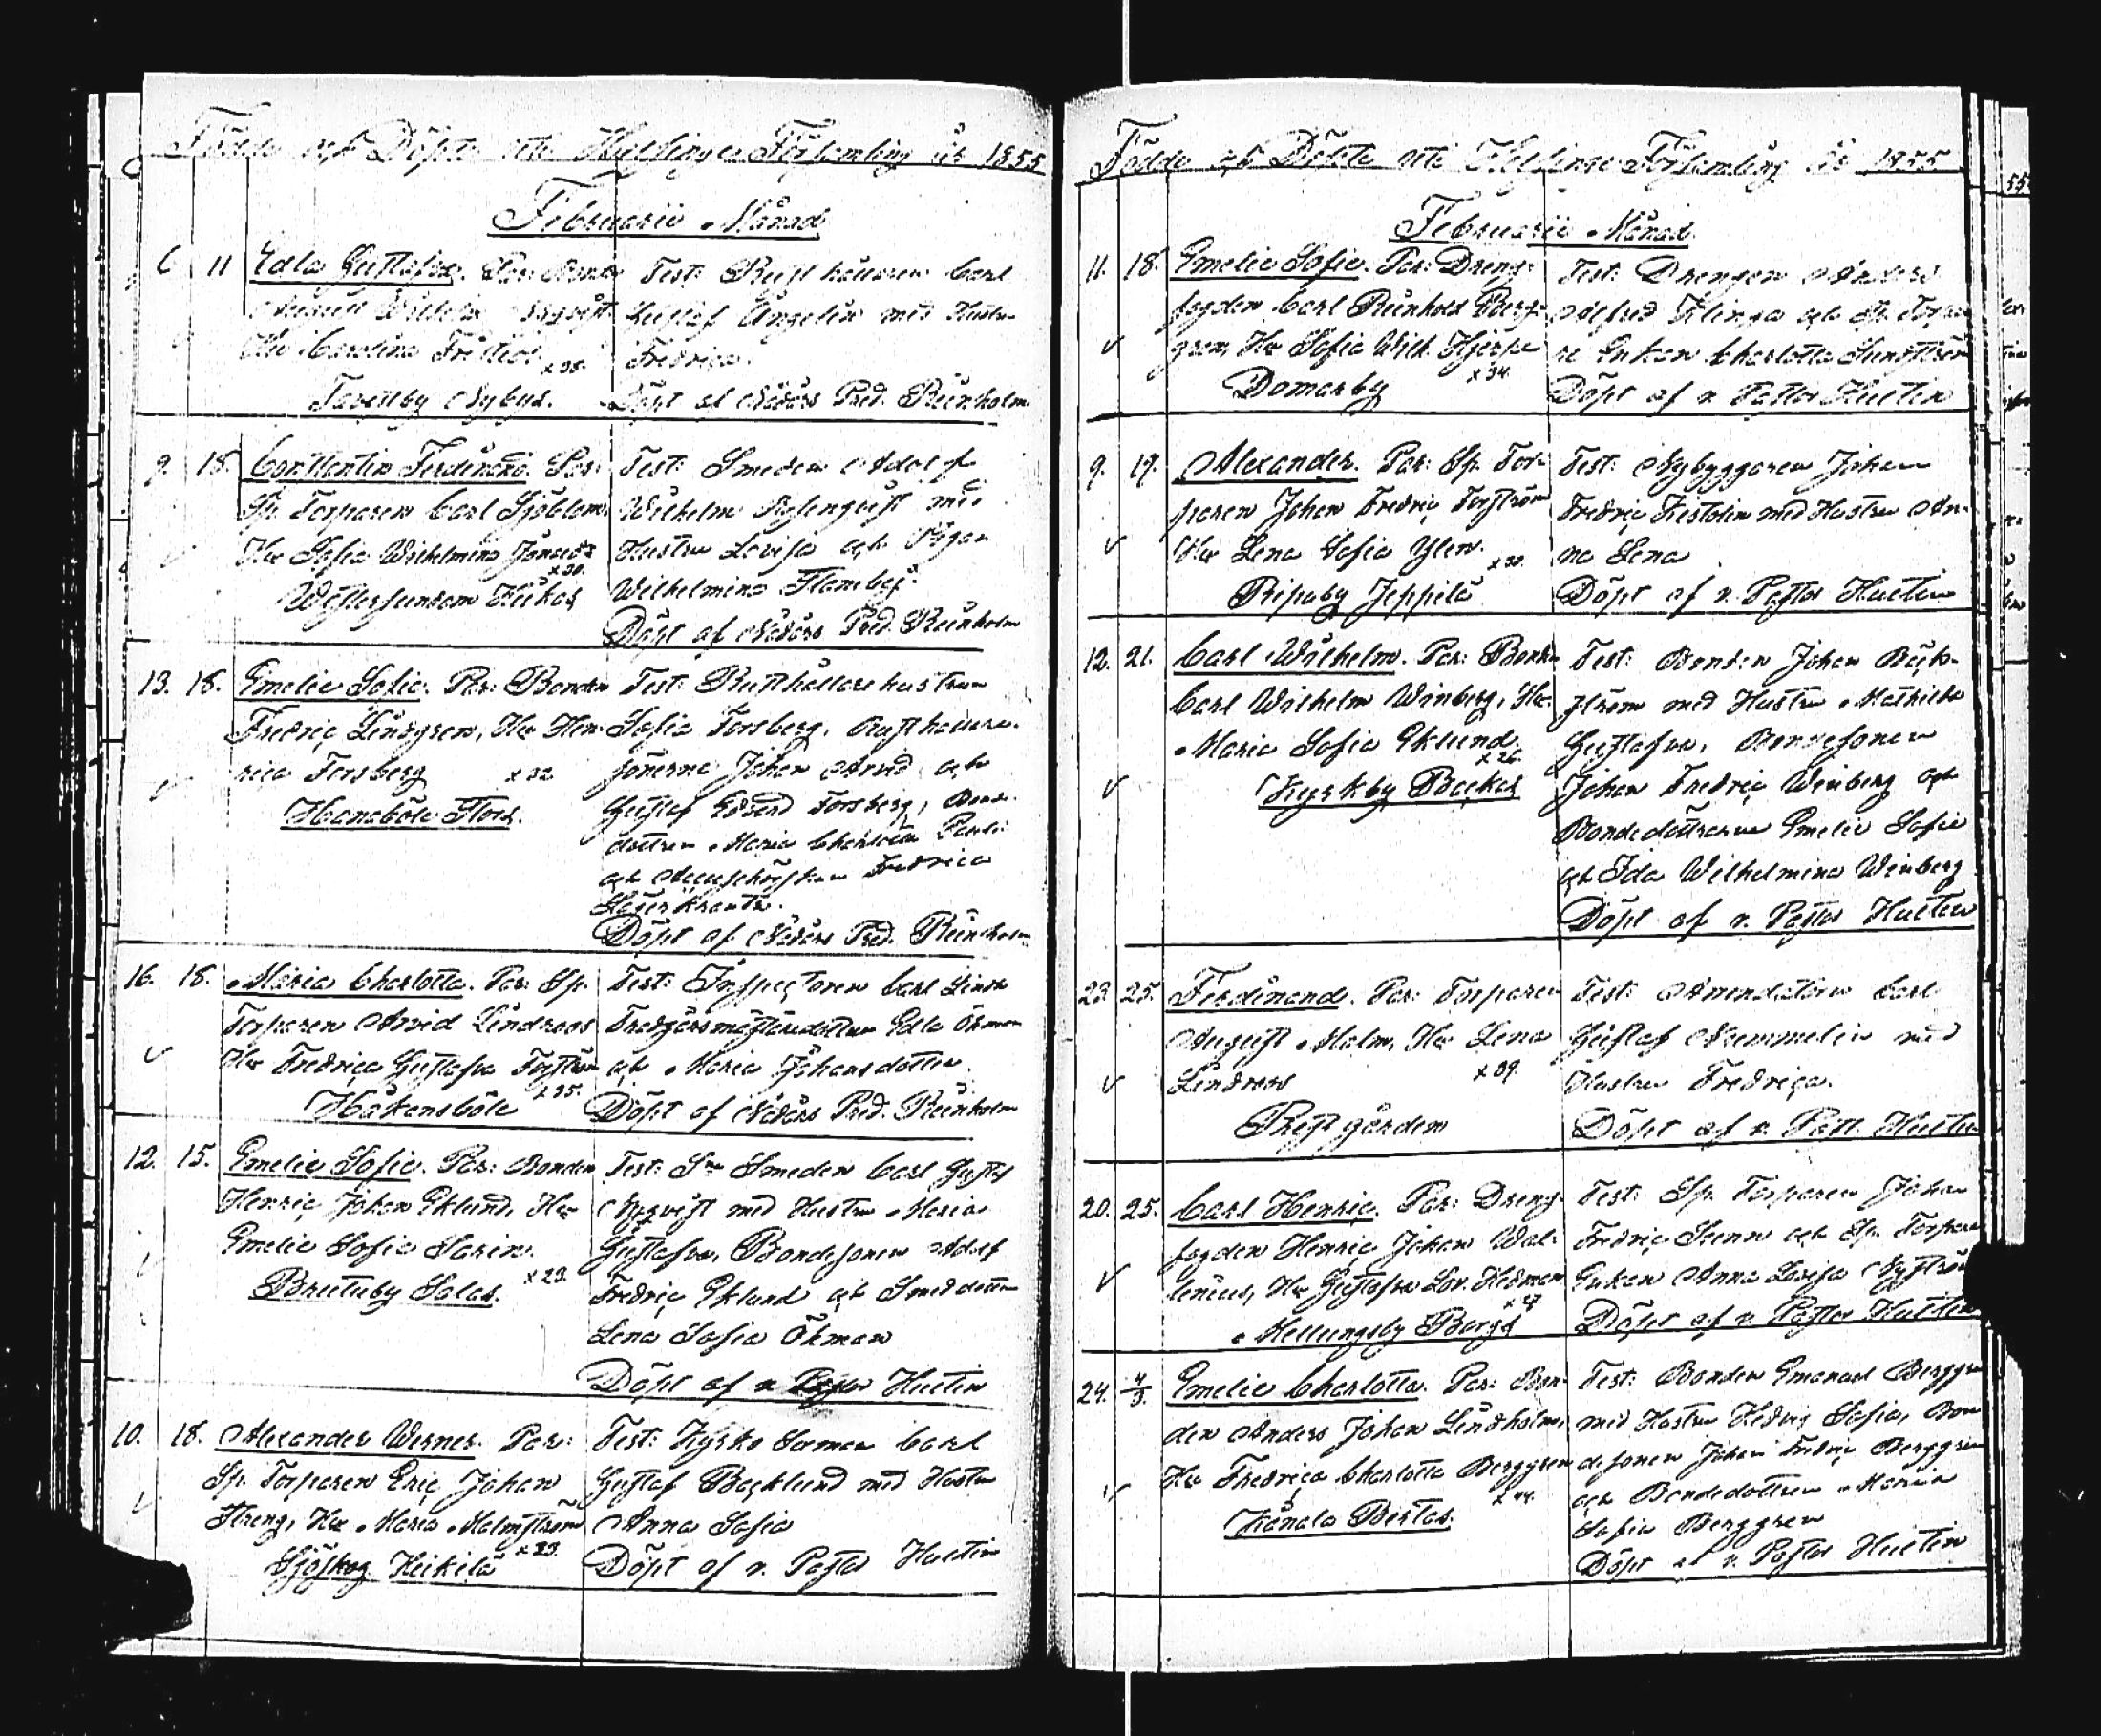 Födde och Döpte uti Helsinge Församling år 1855
Februarii Månad
6 11 Edla Gustafva. Par: Bonden
Wilhelm
Hu Carolina x 38.
Tavastby Nybys.
Test: Rusthållaren Carl
Gustaf Ångelin med Hustru
Fredrica.
Döpt af Nådårs Pred. Reinholm
9. 18. Constantin Ferdinand. Par:
Sp. Torparen Carl Sjöblom
Hu Sofia Wilhelmina x 30.
Westersundom
Test: Smeden Adolf
Wilhelm Rosenqvist med
Hustru Lovisa och Pigan
Wilhelmina
Döpt af Nådårs Pred. Reinholm
13. 18. Emelie Sofie. Par: Bonden
Fredric Lindgren, Hu Hen-
rica Forsberg x 32
Hanaböle
Test: Rusthållare hustrun
Sofia Forsberg, Rusthållare-
sönerne Johan Arvid och
Gustaf Edvard Forsberg, Bonde-
dottren Maria Charlotta
och Fredrica
Döpt af Nådårs Pred. Reinholm
16. 18. Maria Charlotta. Par: Sp.
Torparen Arvid Lindroos
Hu Fredrica Gustafva x 35.
Håkansböle
Test: Inspectoren Carl
Trädgårsmästaredottren Edla Öhman
och Maria Johansdotter
Döpt af Nådårs Pred. Reinholm
12. 15. Emelie Sofie. Par: Bonden
Henric Johan Eklund, Hu
Emelie Sofie Sarin. x 23.
Brutuby Salas.
Test: Smeden Carl Gustaf
Nyqvist med Hustru Maria
Gustafva, Bondesonen Adolf
Fredric Eklund och Smeddottren
Lena Sofia Öhman
Döpt af v. Pastor Hultin
10. 18. Alexander Werner. Par:
Sp. Torparen Eric Johan
Streng, Hu Maria Malmström x 23.
Sjöskog Heikilä
Test: Carl
Gustaf Backlund med Hustru
Anna Sofia
Döpt af v. Pastor Hultin
Födde och Döpte uti Helsinge Församling år 1855
Februarii Månad.
11. 18. Emelie Sofie. Par: Dreng-
fogden Carl Reinhold Berg-
gren, Hu Sofia Wilh. Hjerpe x 34.
Domarby
Test: Drengen Anders
Alfred Klinga och Sp. Torpa-
re Enkan Charlotta Sundström
Döpt af v. Pastor Hultin
9. 19. Alexander. Par: Sp. Tor-
paren Johan Fredric Forsström
Hu Lena Sofia Ylen. x 30.
Ripuby Jeppilä
Test: Nybyggaren Johan
Fredric med Hustru An-
na Lena
Döpt af v. Pastor Hultin
12. 21. Carl Wilhelm. Par: Bonden
Carl Wilhelm Winberg, Hu
Maria Sofia Eklund x 26.
Kyrkby Backas
Test: Bonden Johan Bäck-
ström med Hustru Mathilda
Gustafva, Bondesonen
Johan Fredric Winberg och
Bondedöttrarne Emelie Sofie
och Ida Wilhelmina Winberg
Döpt af v. Pastor Hultin
23. 25. Ferdinand. Par: Torparen
August Malm, Hu Lena
Lindroos x 39.
Prestgården
Test: Arrendatorn Carl
Gustaf Nummelin med
Hustru Fredrica.
Döpt af v. Past. Hultin
20. 25. Carl Henric. Par: Dreng-
fogden Henric Johan Wal-
lenius, Hu Gustafva Lov. Hedman x 27
Mellungsby Borgs
Test: Sp. Torparen Johan
Fredric Stenn och Sp. Torpare
Enkan Anna Lovisa Nyström
Döpt af v. Pastor Hultin
24. 4/3. Emelie Charlotta. Par: Bon-
den Anders Johan Lindholm,
Hu Fredrica Charlotta Berggren x 44.
Kånala Bertas.
Test: Bonden Emanuel Berggren
med Hustru Hedvig Sofia, Bon-
desonen Johan Fredric Berggren
och Bondedottren Maria
Sofia Berggren
Döpt af v. Pastor Hultin